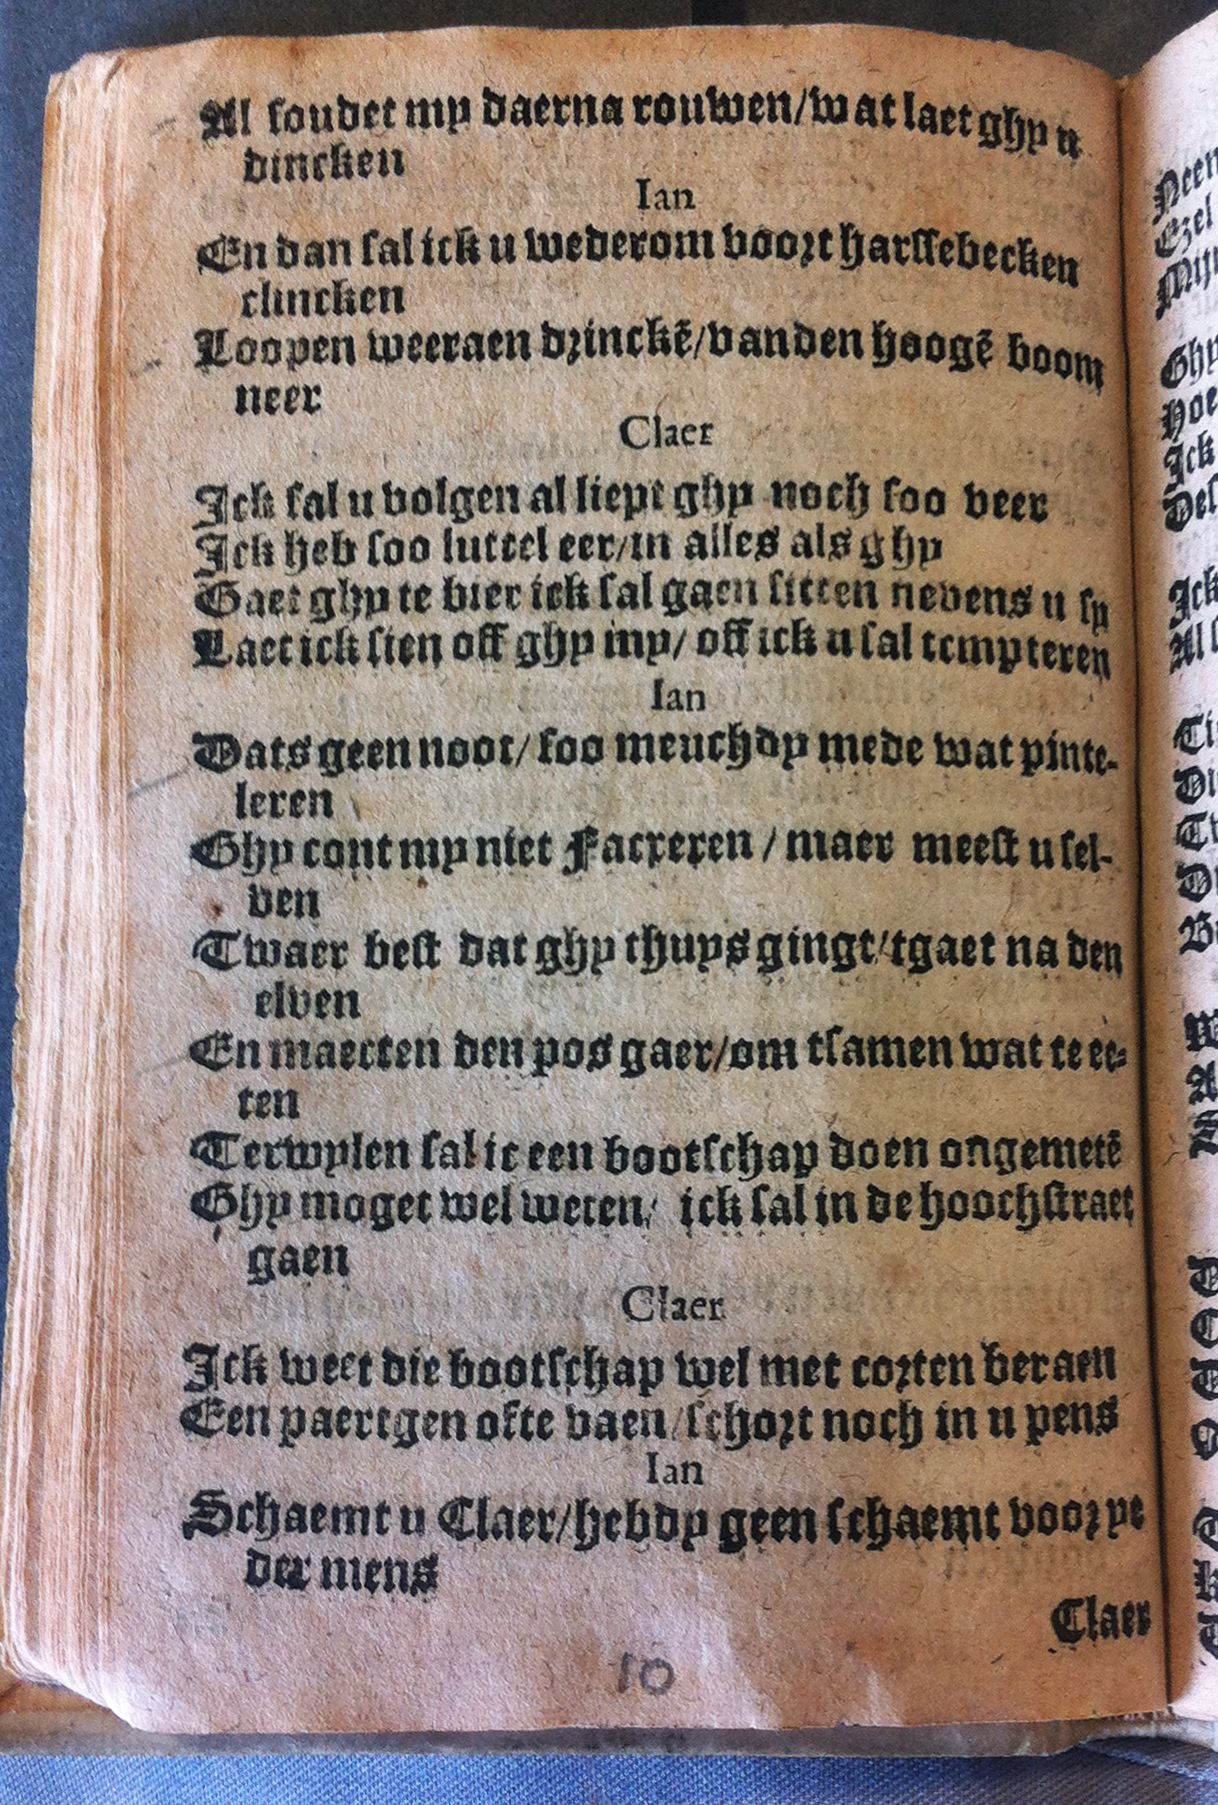 Al soudet my daerna rouwen/wat laet ghy u
dincken
Ian
En dan sal ick u wederom voort harssebecken
clincken
Loopen weeraen drinckẽ/vanden hoogẽ boom
neer
Claer
Ick sal u volgen al liept ghy noch soo veer
Ick heb soo luttel eer/in alles als ghy
Gaet ghy te bier ick sal gaen sitten nevens u sy
Laet ick sien off ghy my/ off ick u sal tempteren
Ian
Dats geen noot/ soo meuchdy mede wat pinte-
leren
Ghy cont my niet / maer meest u sel-
ven
Twaer best dat ghy thuys gingt/tgaet na den
elven
En maecten den pos gaer/om tsamen wat te ee-
ten
Terwylen sal ic een bootschap doen ongemetẽ
Ghy moget wel weten/ ick sal in de hoochstraet
gaen
Claer
Ick weet die bootschap wel met corten beraen
Een paertgen ofte vaen/schort noch in u pens
Ian
Schaemt u Claer/hebdy geen schaemt voor ye
der mens
Claer
10
Neen
Ezel
Ick